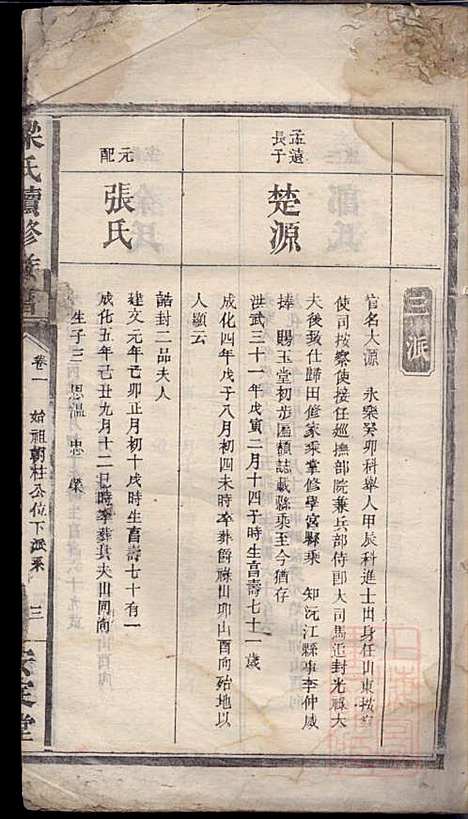 三派
孟遠
長子
楚源
官名大源 永樂癸卯科舉人甲辰科進士出身任山東按察
使司按察使接任巡撫部院兼兵部侍郎大司馬誥封光祿大
夫後致仕歸田修家乘掌修學宮縣乘 知沅江縣事李仲威
捧 賜玉堂初步匾額誌載縣乘至今猶存
洪武三十一年戊寅二月十四子時生享壽七十一歲
成化四年戊子八月初四未時卒葬爵祿山卯山酉向殆地以
人顯云
元
配
張氏
誥封二品夫人
建文元年己卯正月初十戌時生享壽七十有一
成化五年己丑九月十二巳時卒葬與夫山同向
生子三 思溫 忠 榮
梁氏續修族譜
卷一 始祖朝柱公位下派系
三
安定堂